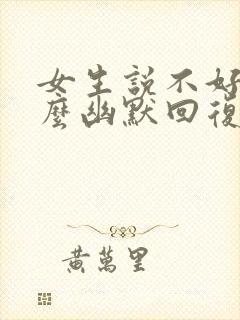 女生説不好
麼幽默回復
黃萬里